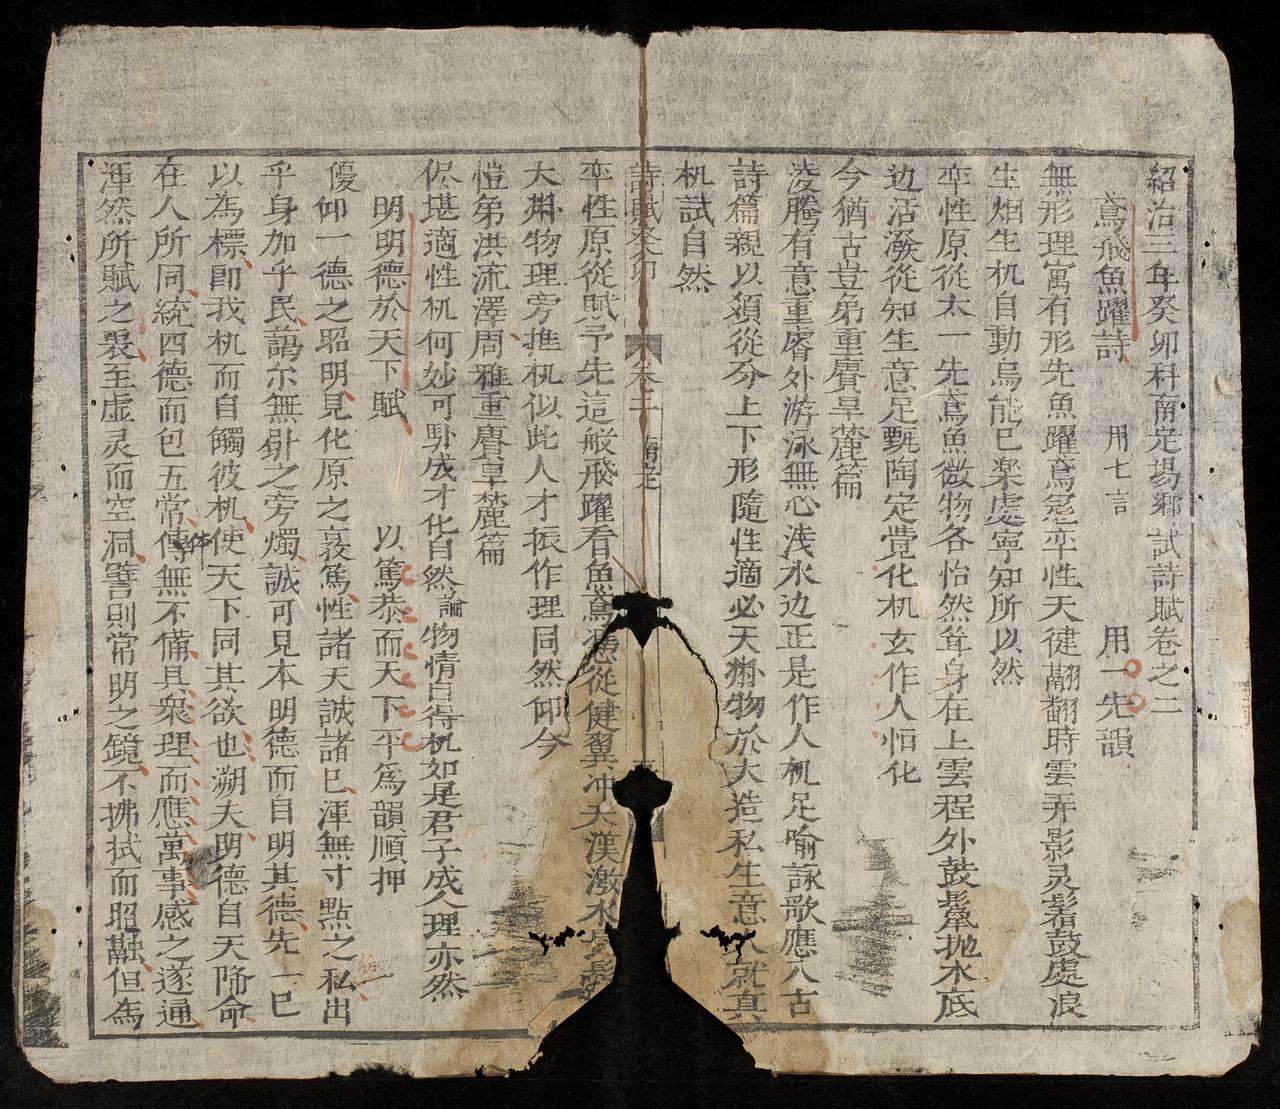 紹治三年癸卯科南定場鄉試詩賦卷之二
鳶飛魚躍詩 用七言 用一先韻
無形理寓有形先魚躍鳶忩卒性天健翮翻時雲弄影灵鬐鼓處浪
生烟生机自動烏能已楽處寧知所以然
卒性原從太一先鳶魚微物各怡然耸身在上雲程外鼓鬣抛水底
边活潑從知生意足甄陶定覺化机玄作人恒化
今猶古豈弟重賡旱麓篇
淩騰有意重霄外游泳無心浅水边正是作人机足喻詠歌應八古
詩篇親以須從分上下形隨性適必天淵物於大造私生意 就真
机試自然
詩賦癸卯 卷二 南定
卒性原從賦予先這般飛躍看魚鳶 從健翼冲天漢激水長
大 物理旁推机似此人才振作理同然仰今
愷弟洪流澤周雅重賡旱麓篇
俱堪適性机何妙可卧成才化自然論物情自得机如是君子成人理亦然
明明德於天下賦 以篤恭而天下平為韻順押
優仰一德之昭明見化原之裒篤性諸天誠諸已渾無寸點之私出
乎身加乎民藹尔無 之旁燭誠可見本明德而自明其德先一已
以為標即我机而自觸彼机使天下同其欲也溯夫明德自天降命
在人所同統四德而包五常体傳無不備具衆理而應萬事感之遂通
渾然所賦之衷至虚灵而空洞 則常明之鏡不拂拭而昭融但為